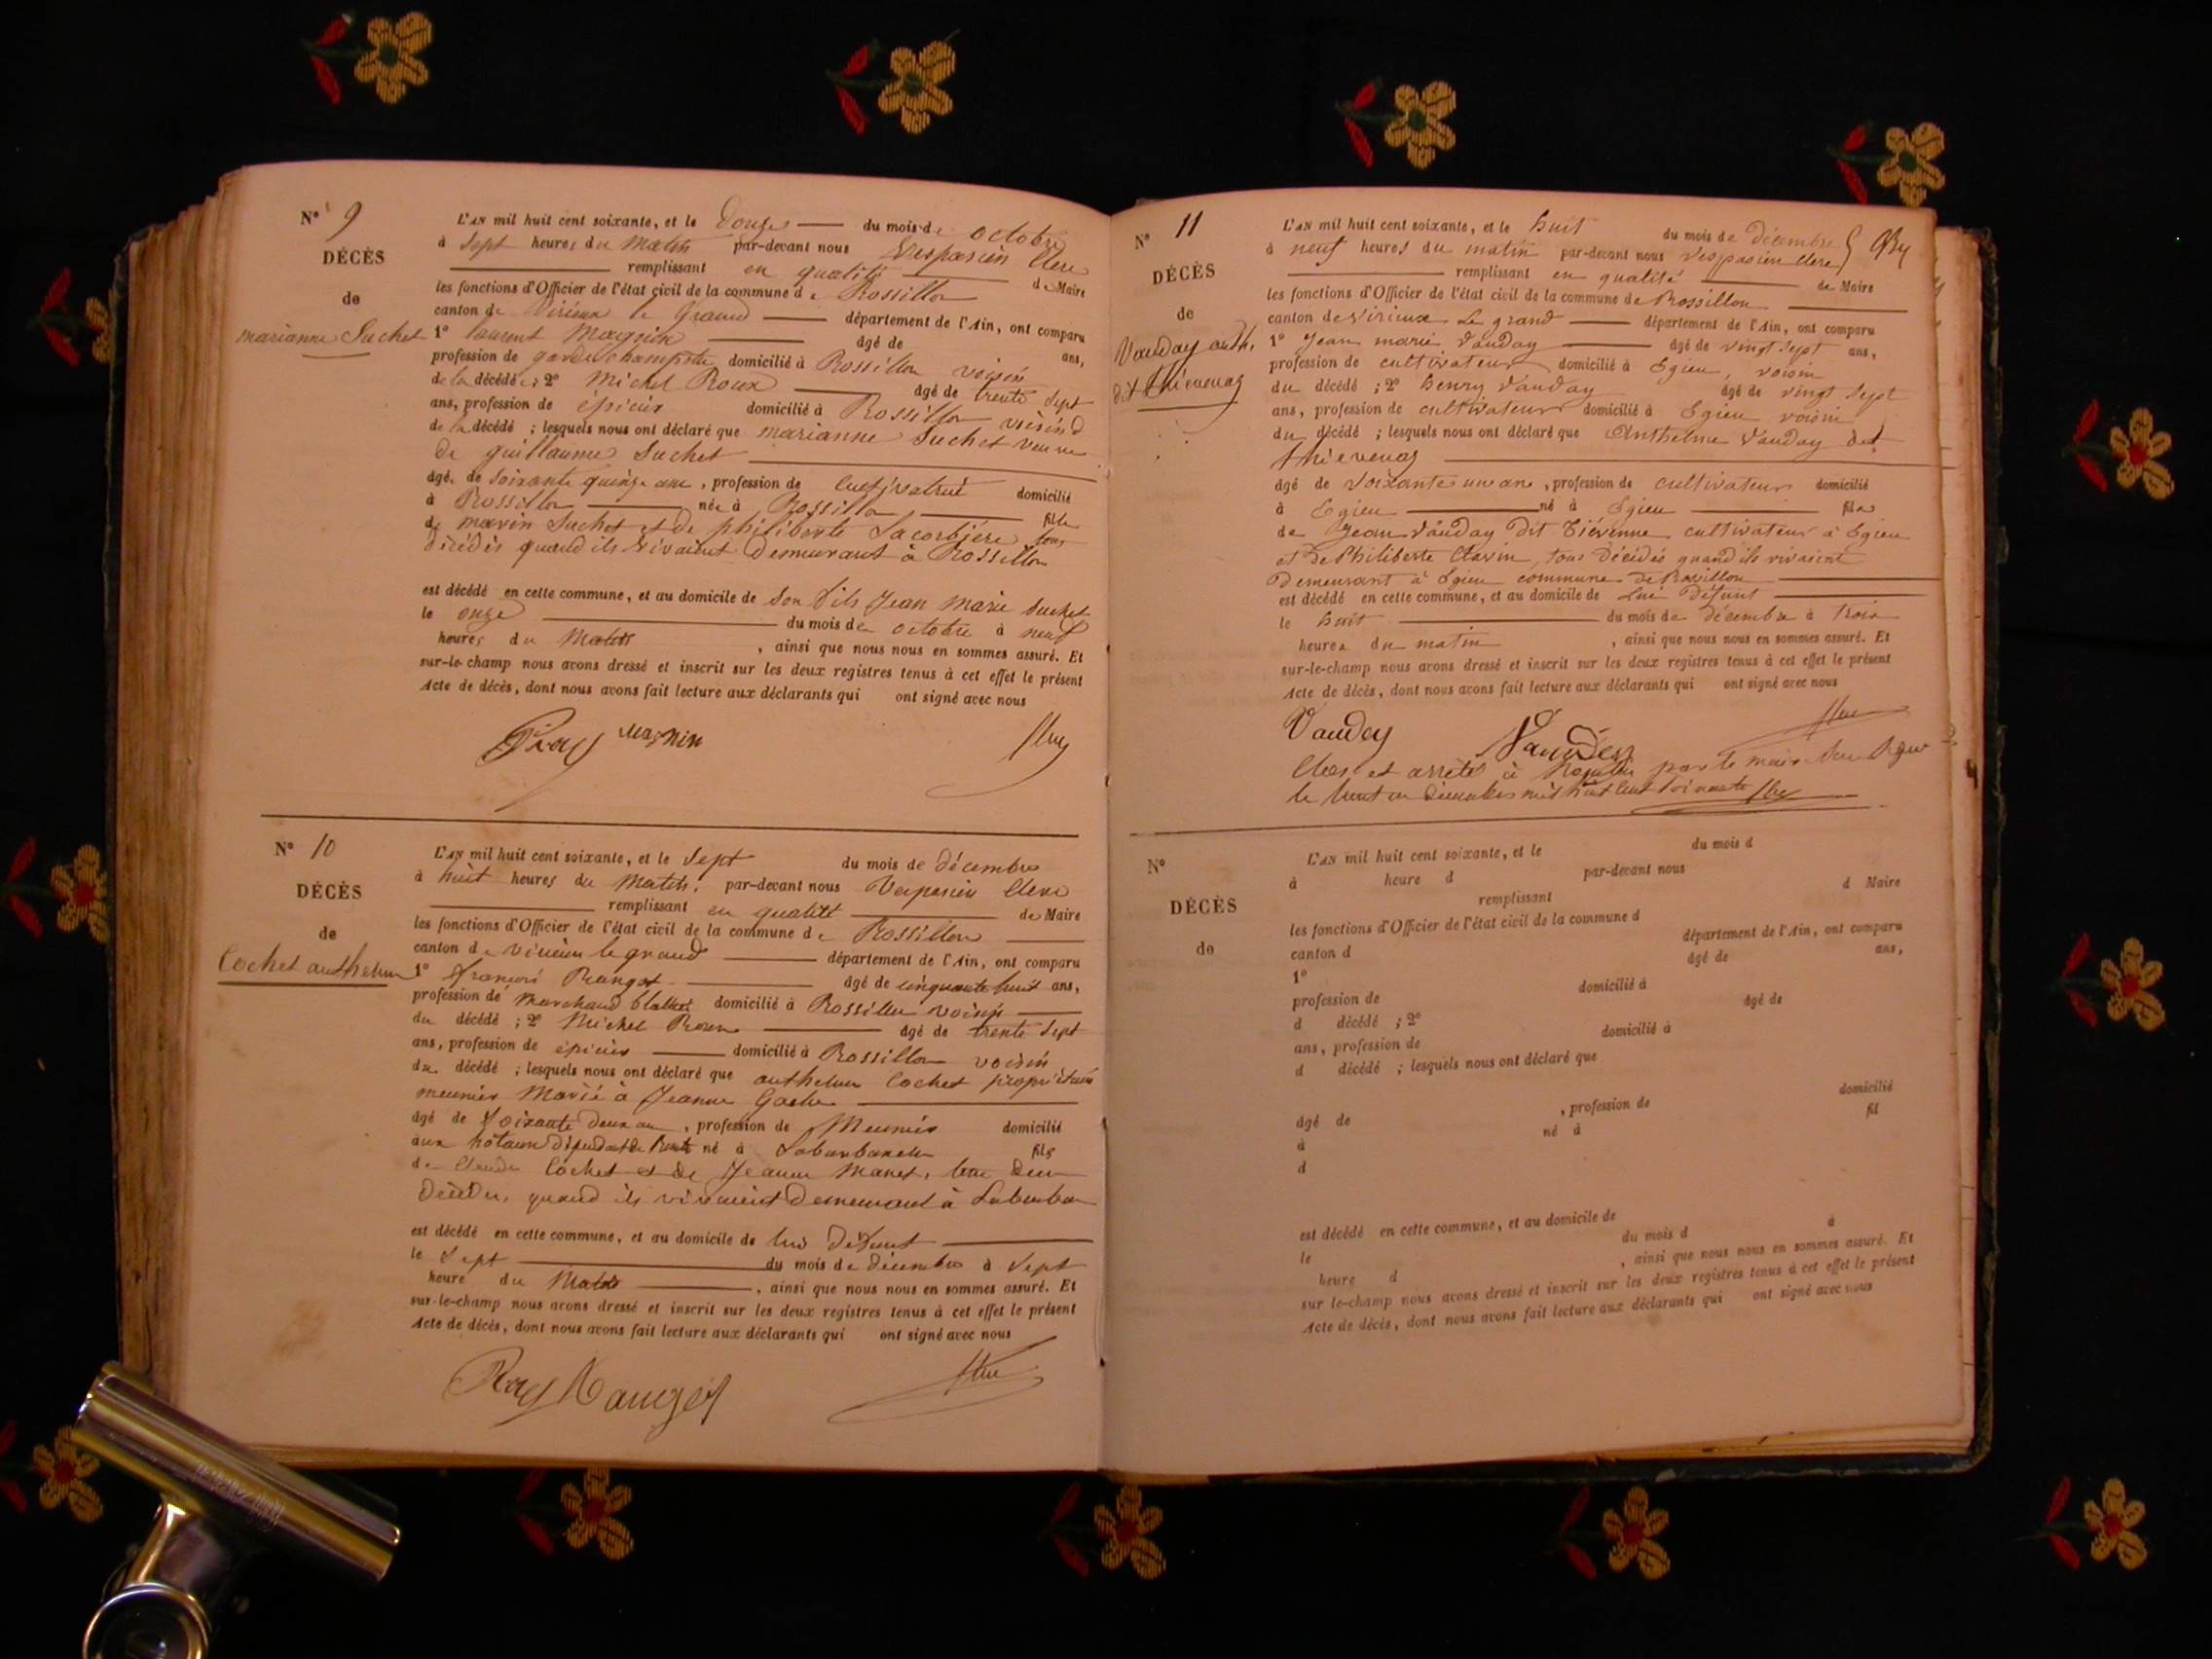 N° 9
DÉCÈS
de
marianne Suchet
L'AN mil huit cent soixante, et le Douze du mois de octobre
à Sept heures du Matin par-devant nous Vespasien Clerc
remplissant en qualité de Maire
les fonctions d'Officier de l'état civil de la commune de Rossillon
canton de Virieux le Grand département de l'Ain, ont comparu
1° laurent Magnin âgé de ans,
profession de garde champetre domicilié à Rossillon voisin
de la décédée; 2° Michel Roux âgé de trente sept
ans, profession de épicier domicilié à Rossillon voisin
de la décédé ; lesquels nous ont déclaré que marianne Suchet veuve
de guillaume Suchet
âgé de soixante quinze ans, profession de domicilié
à Rossillon née à Rossillon fille
de marin Suchet et de philiberte Lacorbière tous
décédés quand ils vivaient Demeurant à Rossillon
est décédé en cette commune, et au domicile de son fils Jean Marie Suchet
le onze du mois de octobre à neuf
heures du Matin , ainsi que nous nous en sommes assuré. Et
sur-le-champ nous avons dressé et inscrit sur les deux registres tenus à cet effet le présent
Acte de décès, dont nous avons fait lecture aux déclarants qui ont signé avec nous
Magnin
N° 10
DÉCÈS
de
Cochet anthelme
L'AN mil huit cent soixante, et le Sept du mois de décembre
à huit heures du Matin, par-devant nous Vespasien Clerc
remplissant en qualité de Maire
les fonctions d'Officier de l'état civil de la commune de Rossillon
canton de virieux le grand département de l'Ain, ont comparu
1° françois Rangot âgé de cinquante huit ans,
profession de Marchand domicilié à Rossillon voisin
du décédé ; 2° Michel Roux âgé de trente sept
ans, profession de épicier domicilié à Rossillon voisin
du décédé ; lesquels nous ont déclaré que anthelme Cochet propriétaire
meunier Marié à Jeanne
âgé de Soixante deux ans, profession de Meunier domicilié
aux né à Laburbanche fils
de Claude Cochet et de Jeanne tous deux
Décédés, quand ils vivaient Demeurant à
est décédé en cette commune, et au domicile de lui Défunt
le Sept du mois de décembre à Sept
heure du Matin , ainsi que nous nous en sommes assuré. Et
sur-le-champ nous avons dressé et inscrit sur les deux registres tenus à cet effet le présent
Acte de décès, dont nous avons fait lecture aux déclarants qui ont signé avec nous
N° 11
DÉCÈS
de
Vauday anth.
dit thievenaz
L'AN mil huit cent soixante, et le huit du mois de décembre
à neuf heures du matin par-devant nous Vespasien Clerc
remplissant en qualité de Maire
les fonctions d'Officier de l'état civil de la commune de Rossillon
canton de Virieux Le grand département de l'Ain, ont comparu
1° Jean marie Vauday âgé de vingt sept ans,
profession de cultivateur domicilié à Egieu, voisin
du décédé ; 2° henry Vauday âgé de vingt sept
ans, profession de cultivateur domicilié à Egieu voisin
du décédé ; lesquels nous ont déclaré que Anthelme Vauday dit
thievenaz
âgé de soixante un ans, profession de cultivateur domicilié
à Egieu né à Egieu fils
de Jean Vauday dit Tiévenne cultivateur à Egieu
et de Philiberte Clavin, tous décédés quand ils vivaient
Demeurant à Egieu commune de Rossillon
est décédé en cette commune, et au domicile de Lui Défunt
le huit du mois de décembre à trois
heures du matin , ainsi que nous nous en sommes assuré. Et
sur-le-champ nous avons dressé et inscrit sur les deux registres tenus à cet effet le présent
Acte de décès, dont nous avons fait lecture aux déclarants qui ont signé avec nous
Vauday Vauday
Clos et arrêté à Rossillon par le maire
le trent un Décembre mil huit cent soixante
N°
DÉCÈS
de
L'AN mil huit cent soixante, et le du mois d
à heure d par-devant nous
remplissant d Maire
les fonctions d'Officier de l'état civil de la commune d
canton d département de l'Ain, ont comparu
1° âgé de ans,
profession de domicilié à
d décédé ; 2° âgé de
ans, profession de domicilié à
d décédé ; lesquels nous ont déclaré que
âgé de , profession de domicilié
à né à fil
d
est décédé en cette commune, et au domicile de
le du mois d à
heure d , ainsi que nous nous en sommes assuré. Et
sur le-champ nous avons dressé et inscrit sur les deux registres tenus à cet effet le présent
Acte de décès, dont nous avons fait lecture aux déclarants qui ont signé avec nous